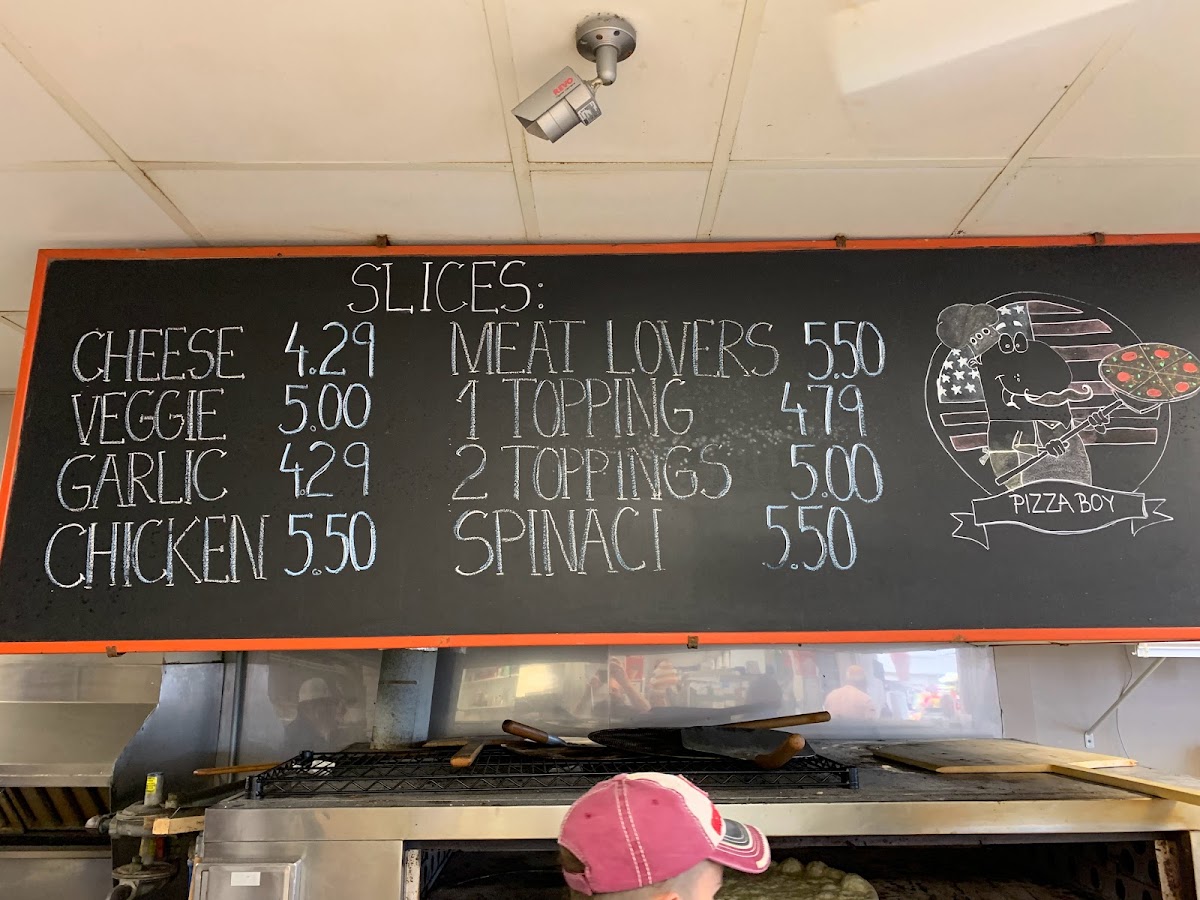 REVO
SLICES:
CHEESE 4.29
VEGGIE 5.00
GARLIC 4.29
CHICKEN 5.50
MEAT LOVERS 5.50
1 TOPPING 4.79
2 TOPPINGS 5.00
SPINACI 5.50
PIZZA BOY